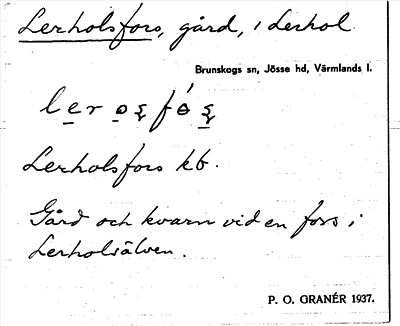 Lerholsfors, gård, i Lerhol.
Brunskogs sn, Jösse hd, Värmlands l.
Lerholsfors kb.
Gård och kvarn vid en fors i
Lerholsälven.
P. O. GRANÉR 1937.